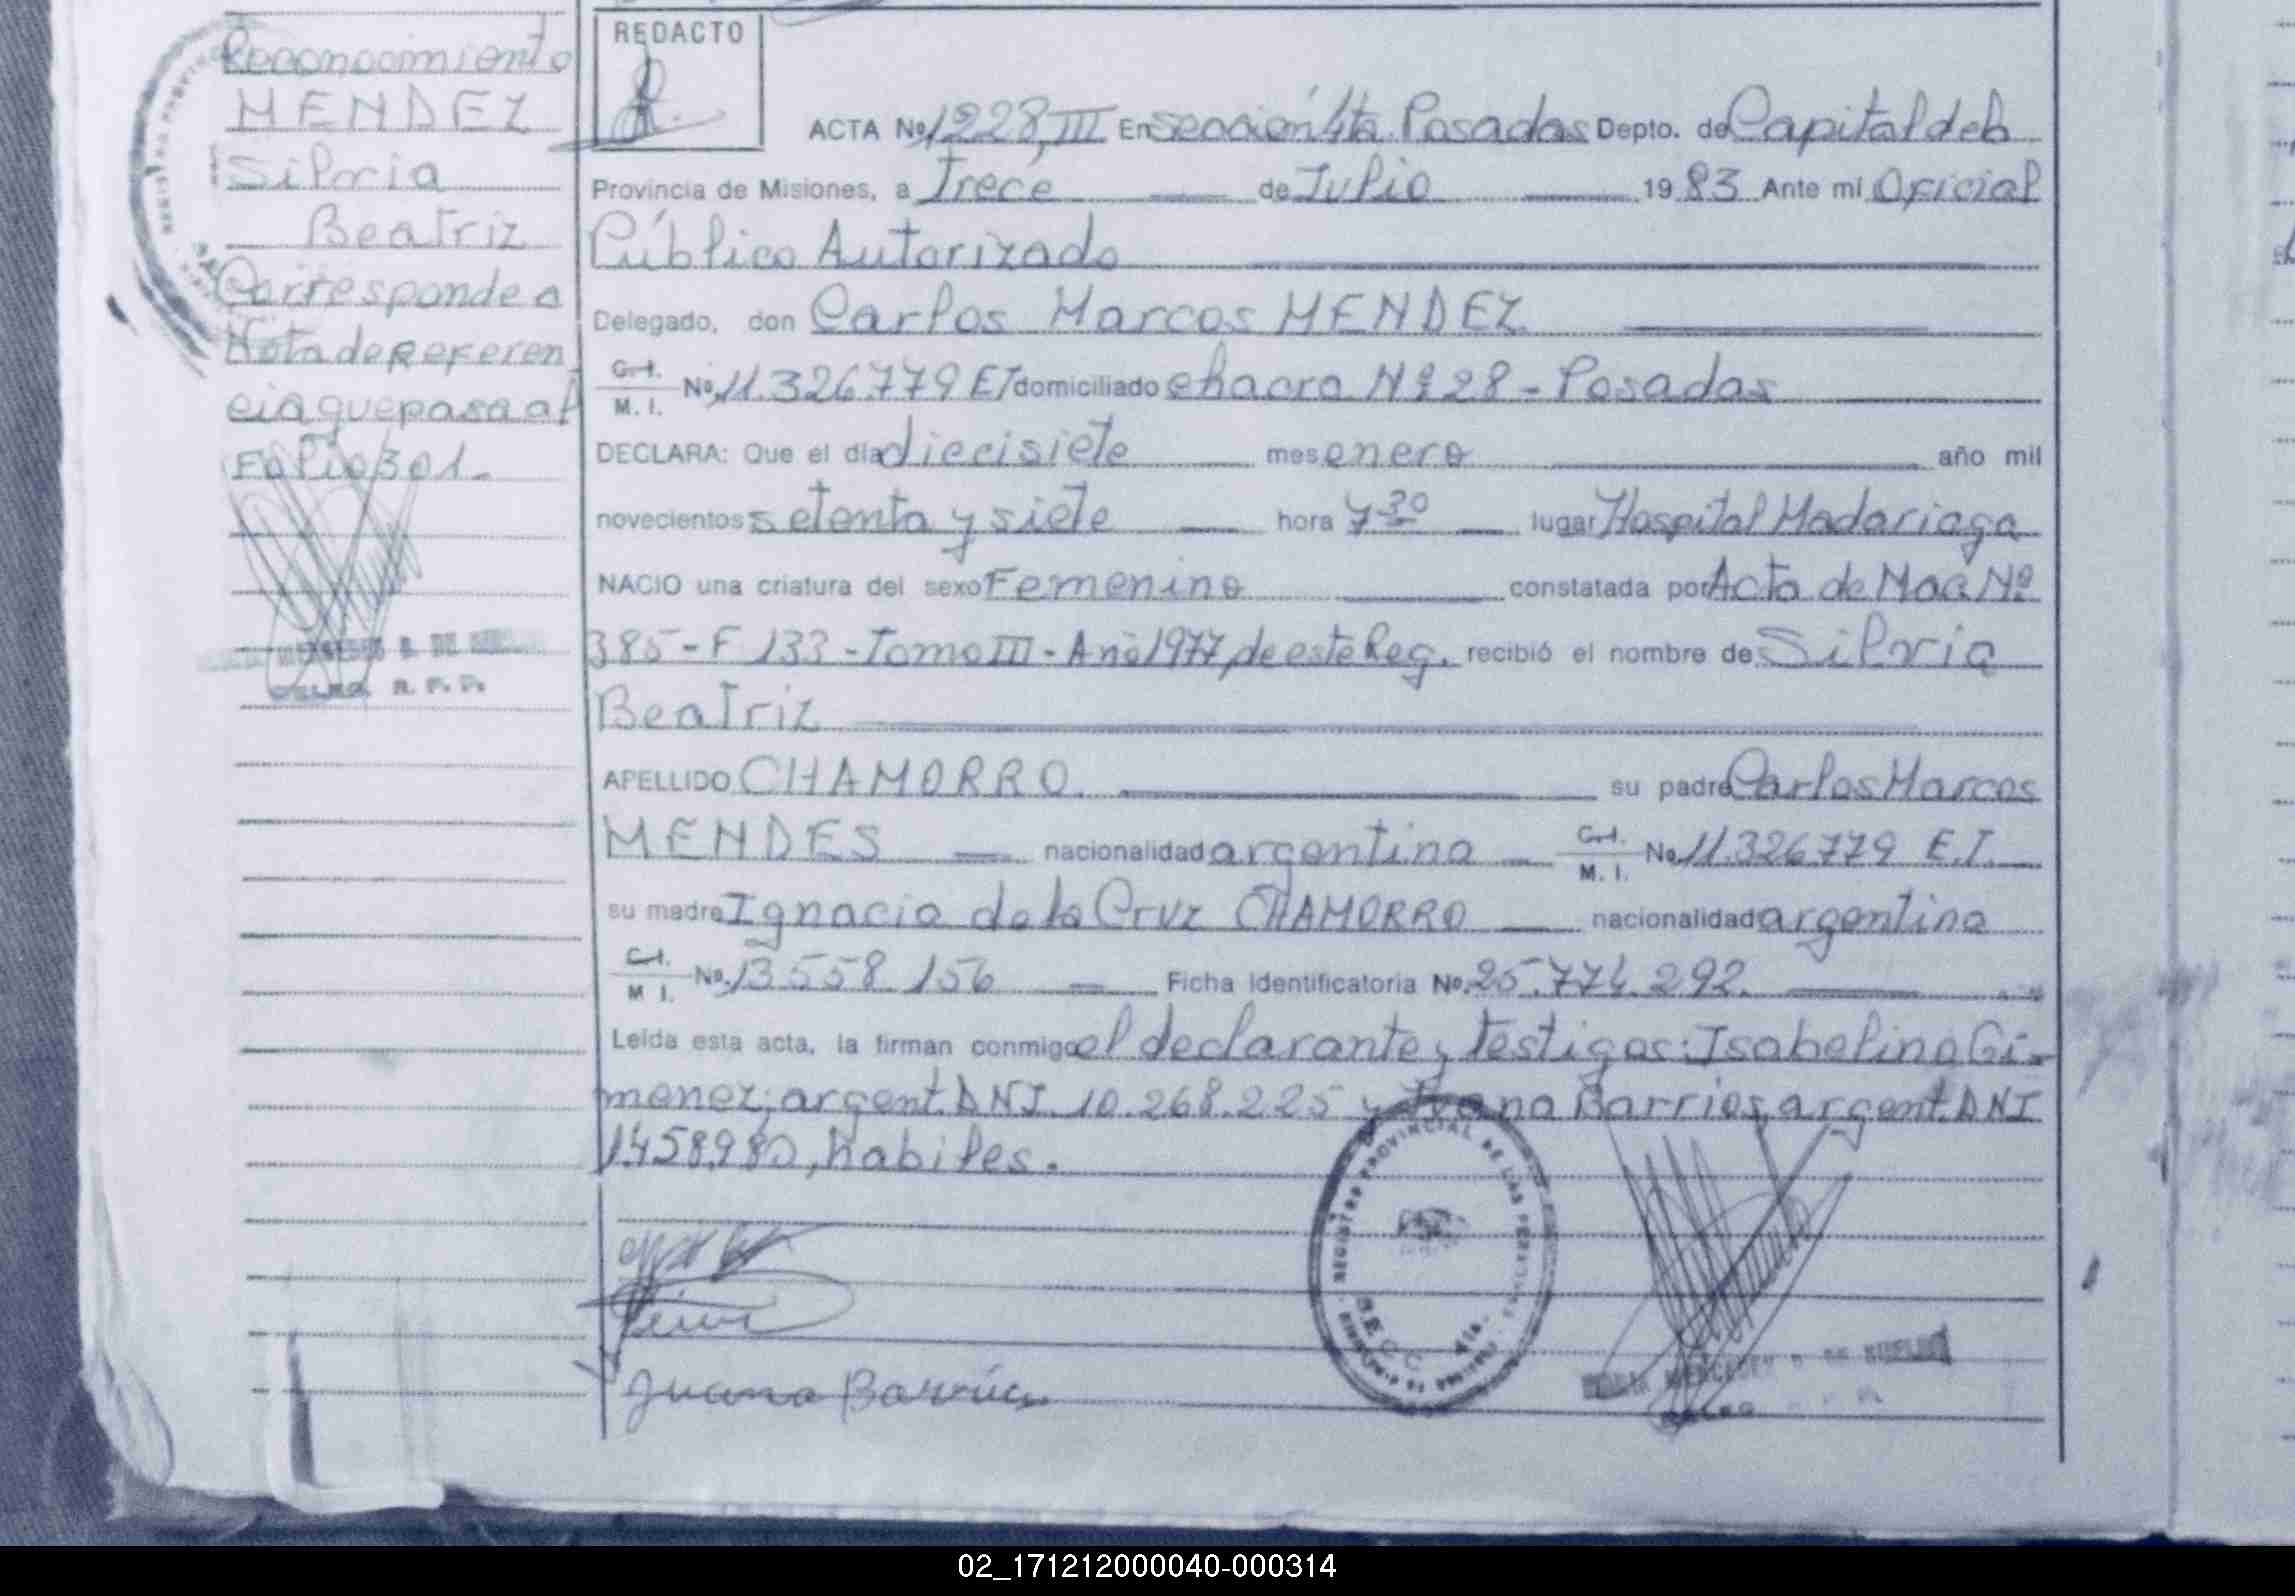 Reconocimiento
MENDEZ
Silvia
Beatriz
Corresponde a
Nota de referen
cia que pasa al
Folio 301.-
REDACTO
ACTA Nº 1228, III En sección 4ta. Posadas Depto. de Capital de la
Provincia de Misiones, a Trece de Julio 1983 Ante mí Oficial
Público Autorizado
Delegado, don Carlos Marcos MENDEZ
C.I. M. I. Nº 11.326.779 E/ domiciliado chacra Nº 28 - Posadas
DECLARA: Que el día diecisiete mes enero año mil
novecientos setenta y siete hora 7 30 lugar Hospital Madariaga
NACIO una criatura del sexo Femenino constatada por Acta de Nac. Nº
385 - F 133 - Tomo III - Año 1977 de este Reg. recibió el nombre de Silvia
Beatriz
APELLIDO CHAMORRO. su padre Carlos Marcos
MENDES nacionalidad argentino C.I. M. I. Nº 11.326.779 E.I.
su madre Ignacia de la Cruz CHAMORRO nacionalidad argentina
C.I. M. I. Nº 13.558.156 Ficha Identificatoria Nº 25.774.292.
Leída esta acta, la firman conmigo el declarante y testigos: Isabelino Gi-
menez; argent. DNI 10.268.225 y Juana Barrios, argent. DNI
1.458.980, habiles.
REGISTRO PROVINCIAL DE LAS PERSONAS
SECC. 4ta.
Juana Barrios
02_171212000040-000314